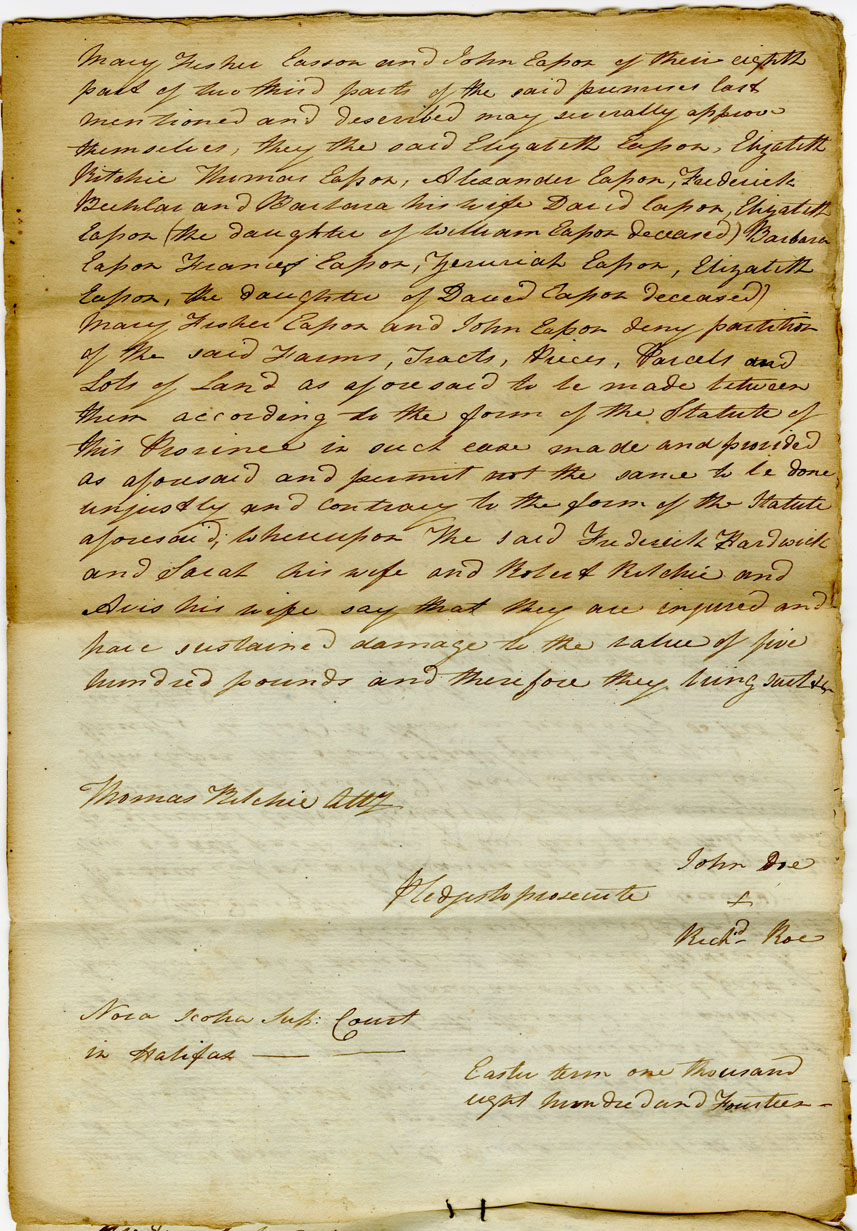 Mary Fisher Easson and John Eason of their eighth
part of two third parts of the said premises last
mentioned and described may severally approve
themselves, they the said Elizabeth Eason, Elizabeth
Ritchie Thomas Eason, Alexander Eason, Frederick
and Barbara his wife David Eason, Elizabeth
Eason (the daughter of William Eason deceased) Barbara
Eason Frances Eason, Zeruriah Eason, Elizabeth
Eason, the daughter of David Eason deceased)
Mary Fisher Eason and John Eason deny partition
of the said Farms, Tracts, Pieces, Parcels and
Lots of Land as aforesaid to be made between
them according to the form of the Statute of
this Province in such case made and provided
as aforesaid and permit not the same to be done
unjustly and contrary to the form of the Statute
aforesaid; whereupon the said Frederick Hardwick
and Sarah his wife and Robert Ritchie and
Avis his wife say that they are injured and
have sustained damage to the value of five
hundred pounds and therefore they bring suit &c
Thomas Ritchie Atty
John Doe
Pledges to prosecute +
Richd Roe
Nova Scotia Sup: Court
in Halifax —— ——
Easter term one thousand
eight hundred and Fourteen -